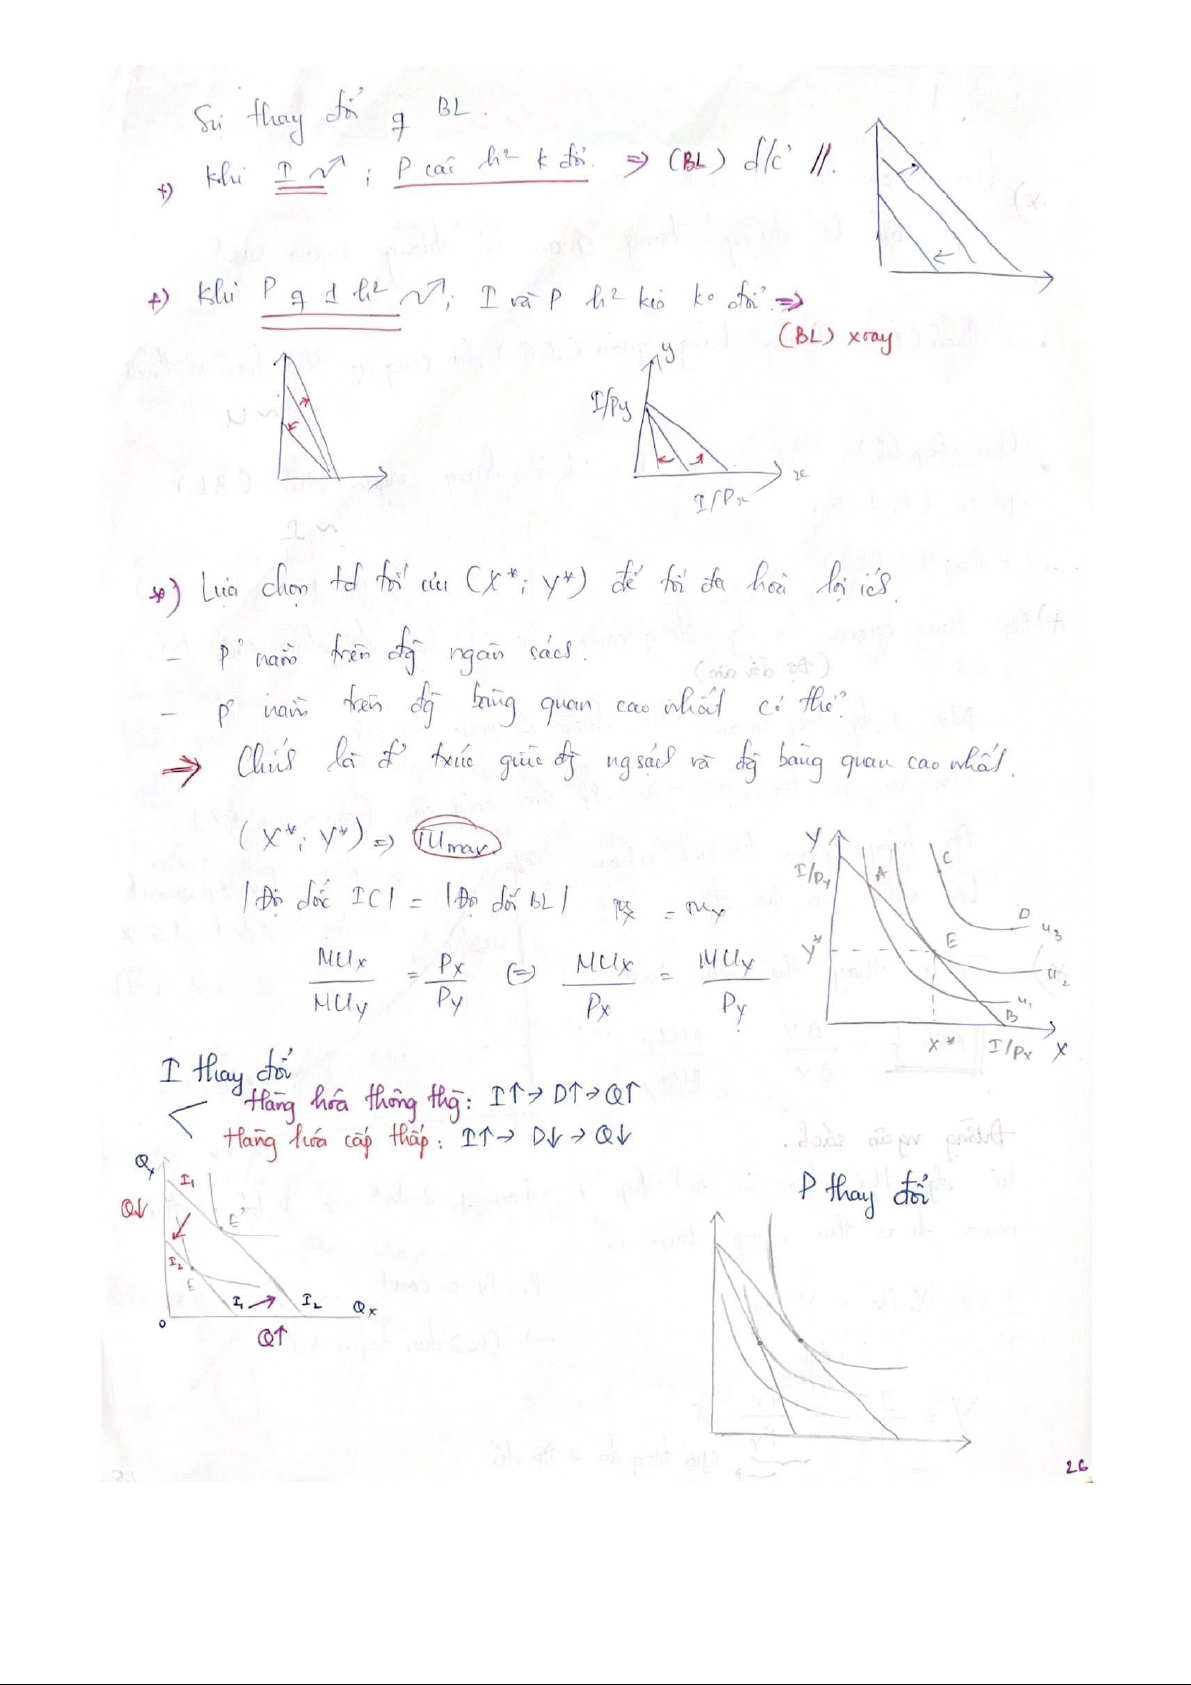 Sự thay đổi q BL.
+) Khi I ; P các h² k đổi. ⇒ (BL) d/c //.
+) Khi P q 1 h² ; I và P h² kia k° đổi ⇒
(BL) xoay
y
I/Py
x
I/Px
*) Lựa chọn td tối ưu (X*; Y*) để tối đa hoá lợi ích.
- P' nằm trên đg ngân sách.
- P' nằm trên đg bàng quan cao nhất có thể.
→ Chính là đ' trực giữa đg ng sách và đg bàng quan cao nhất.
(X*; Y*) ⇒ TUmax
|Độ dốc IC| = |Độ dốc BL|
MUx/MUy = Px/Py ⇔ MUx/Px = MUy/Py
Y
I/Py
A
C
D
u3
Y*
E
u2
u1
B
X*
I/Px
X
I thay đổi
Hàng hóa thông thg: I↑→ D↑→Q↑
Hàng hóa cấp thấp: I↑→ D↓→ Q↓
Qy
I1
Q↓
E'
I2
E
I1
I2
Qx
0
Q↑
P thay đổi
26